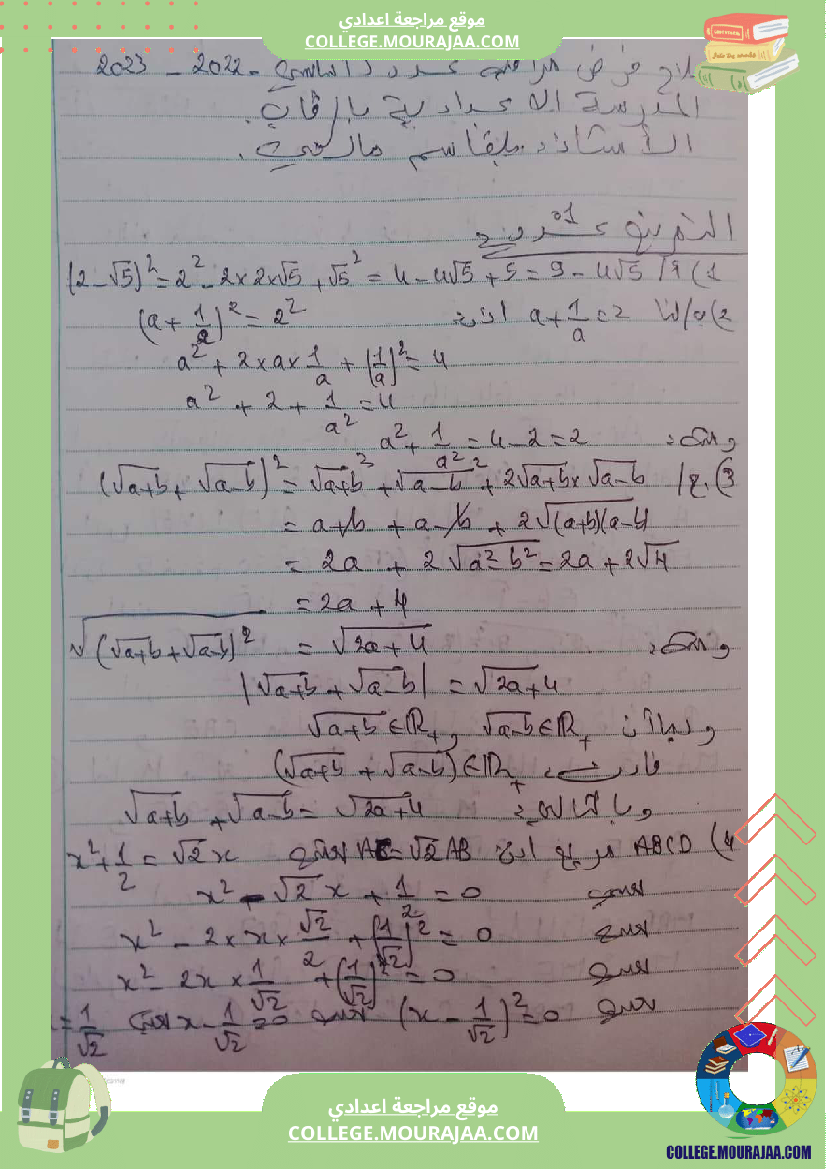 موقع مراجعة اعدادي
COLLEGE.MOURAJAA.COM
فرض مراقبة عدد 2022 - 2023
المدرسة الاعدادية بالرقاب.
الأستاذ: بلقاسم
التمرين عــ01ــدد
1) أ/ (2-√5)² = 2² - 2×2×√5 + √5² = 4 - 4√5 + 5 = 9 - 4√5
2) ب/ لنا a + 1/a = 2 اذن (a + 1/a)² = 2²
a² + 2×a×1/a + (1/a)² = 4
a² + 2 + 1/a² = 4
a² + 1/a² = 4 - 2 = 2
3) ج/ (√a+b + √a-b)² = √a+b² + √a-b² + 2√a+b × √a-b
= a+b + a-b + 2√(a+b)(a-b)
= 2a + 2√a²-b² = 2a + 2√4
= 2a + 4
√(√a+b + √a-b)² = √2a+4
|√a+b + √a-b| = √2a+4
وبما أن √a-b ∈ ℝ₊ و √a+b ∈ ℝ₊
فإن (√a+b + √a-b) ∈ ℝ₊
وبالتالي: √a+b + √a-b = √2a+4
4) ABCD مربع اذن AC = √2 AB يعني x² + 1/2 = √2 x
يعني x² - √2 x + 1/2 = 0
يعني x² - 2×x×√2/2 + (1/√2)² = 0
يعني x² - 2x×1/√2 + (1/√2)² = 0
يعني (x - 1/√2)² = 0 يعني x - 1/√2 = 0 يعني = 1/√2
موقع مراجعة اعدادي
COLLEGE.MOURAJAA.COM
COLLEGE.MOURAJAA.COM